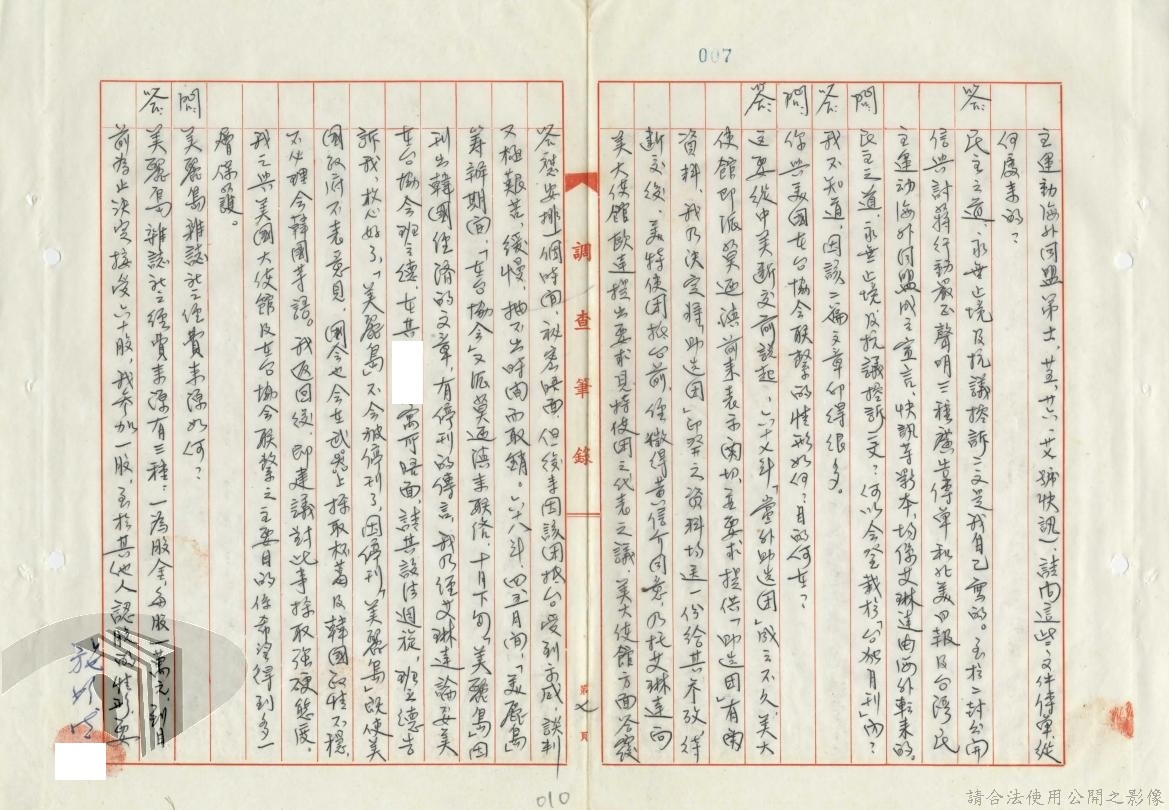 007
主運動海外同盟第廿、廿五、廿六、廿八號快訊」請問這些文件傳單從
何處來的？
答：民主之道、永無止境及抗議控訴二文是我自己寫的。至於二封公開
信與討蔣行動嚴正聲明三種廣告傳單和北美日報及台灣民
主運動海外同盟成立宣言、快訊等影本，均係艾琳達由海外転来的。
問：民主之道、永無止境及抗議控訴二文？何以會登載於「台加月刊」內？
答：我不知道，因該二篇文章印得很多。
問：你與美國在台協會联繫的情形如何？目的何在？
答：主要從中美断交前說起，六十七年「黨外助選團」成立不久，美大
使館即派莫
資料，我乃決定將「助選團」印發之資料均送一份給其參考，待
断交後，美特使團抵台前，經徵得黃信介同意，乃托艾琳達向
美大使館歐達提出要求見特使團之代表之議，美大使館方面答覆
調查筆錄
第七頁
答應安排一個時間，秘密晤面，但後来因該團抵台受到示威，談判
又極艱苦、緩慢，抽不出時間而取銷。六八年、四、五月間，「美麗島」
籌辦期間，「在台協會」又派莫
刊出韓國經濟的文章，有停刊的傳言，我乃經艾琳達論妥美
在台協會班立德，在其
寓所晤面，請其設法週旋，班立德告
訴我，放心好了，「美麗島」不會被停刊了，因停刊「美麗島」既使美
國政府不表意見，國會也會在武器上採取杯葛及韓國政情不穩
不必理會韓國等語。我返回後，即建議對此事採取强硬態度。
我之與美國大使館及在台協會联繫之主要目的係希冀得到多一
層保護。
問：美麗島雜誌社之經費来源如何？
答：美麗島雜誌社之經費来源有三種：一為股金，每股一萬元，到目
前為止決定接受六十股，我參加一股，至於其他人認股的情形要
010
請合法使用公開之影像